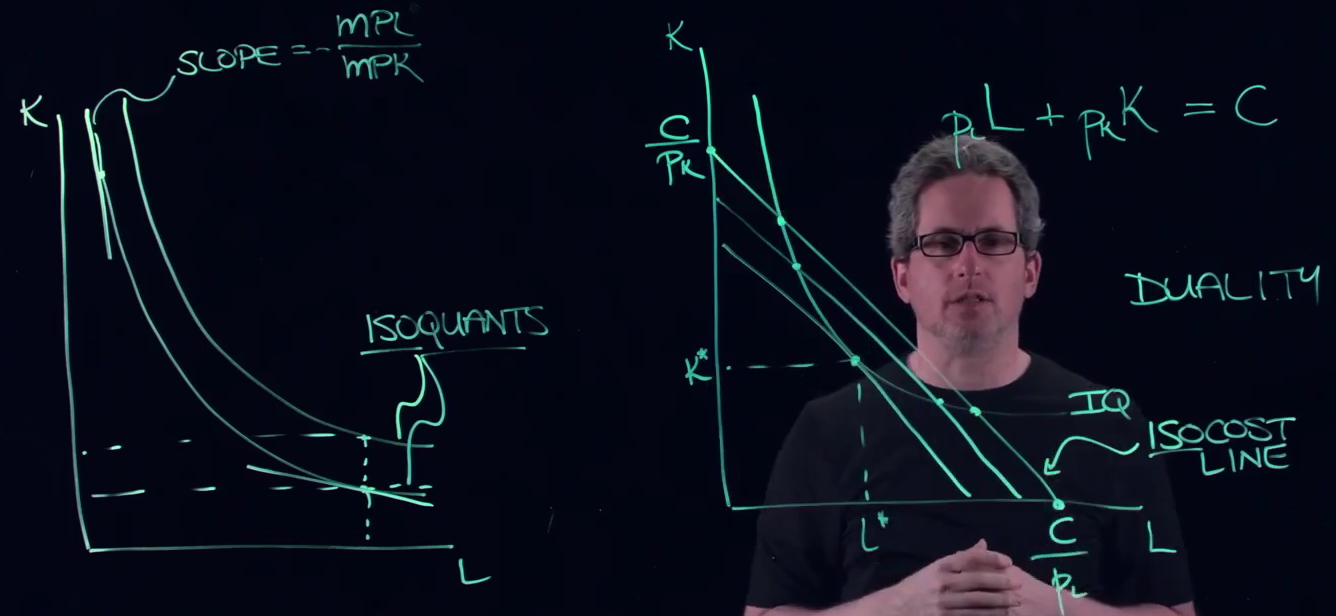 SLOPE = - MPL
MPK
K
ISOQUANTS
L
K
C
PK
pLL + pKK = C
DUALITY
K*
IQ
ISOCOST
LINE
L*
C
pL
L